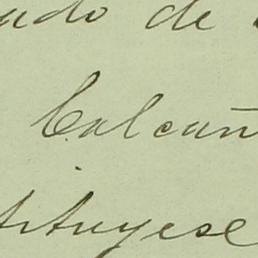 ado de
Calcañ
tituyese